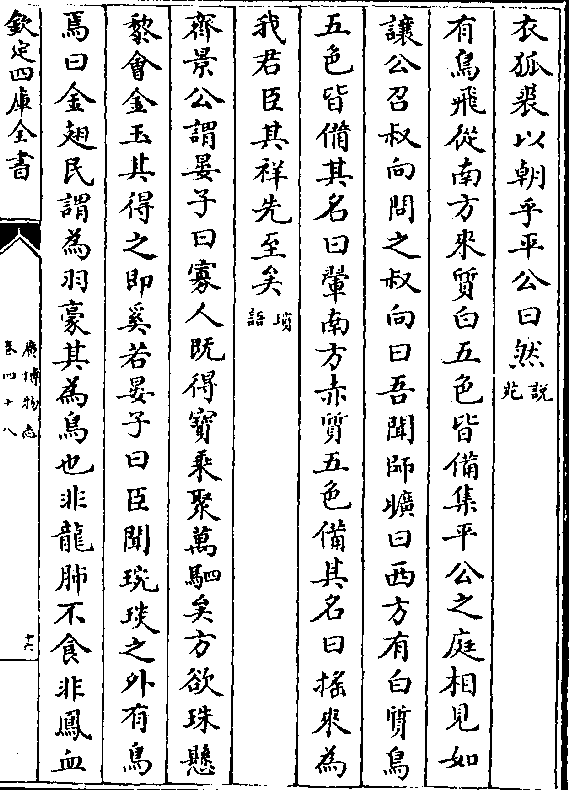 衣狐裘以朝乎平公曰然説苑
有鳥飛從南方來質白五色皆備集平公之庭相見如
讓公召叔向問之叔向曰吾聞師曠曰西方有白質鳥
五色皆備其名曰翬南方赤質五色備其名曰搖來為
我君臣其祥先至矣瑣語
齊景公謂晏子曰寡人既得寳乘聚萬駟矣方欲珠懸
黎會金玉其得之即奚若晏子曰臣聞琬琰之外有鳥
焉曰金翅民謂為羽豪其為鳥也非龍肺不食非鳳血
欽定四庫全書
廣博物志
卷四十八
十六